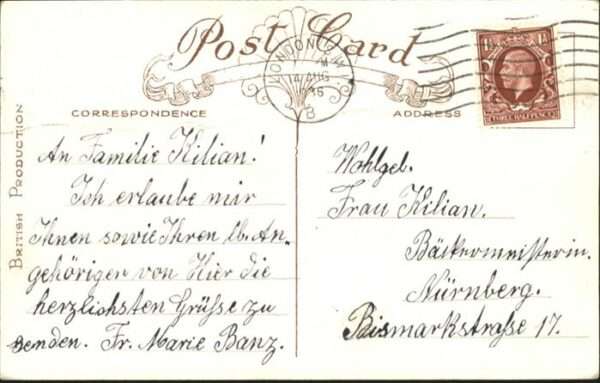 Post Card
LONDON
14 AUG
CORRESPONDENCE
ADDRESS
THREE HALFPENCE
BRITISH PRODUCTION
An Familie Kilian!
Ich erlaube mir
Ihnen sowie Ihren lb. An-
gehörigen von Hier die
herzlichsten Grüsse zu
senden. Fr. Marie Banz.
Wohlgeb.
Frau Kilian.
Bäckermeisterin.
Nürnberg.
Bismarkstraße 17.